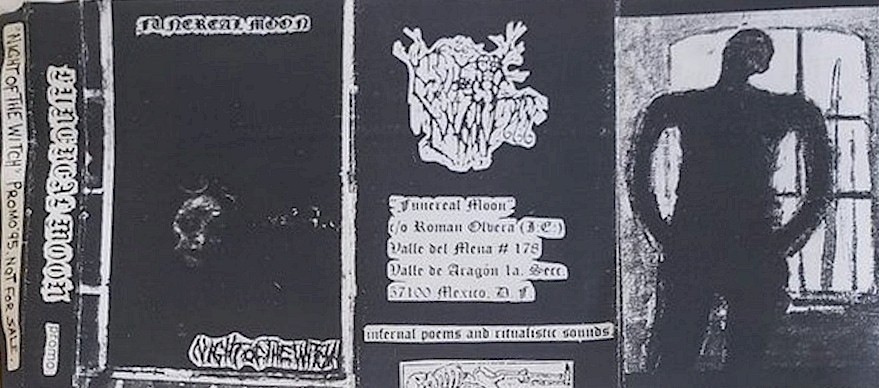 "NIGHT OF THE WITCH" PROMO'95. NOT FOR SALE.
FUNEREAL MOON
promo
FUNEREAL MOON
NIGHT OF THE WITCH
666
"Funereal Moon"
c/o Roman Olvera (J.C.)
Valle del Mena # 178
Valle de Aragón 1a. Secc.
57100 Mexico, D.F.
infernal poems and ritualistic sounds